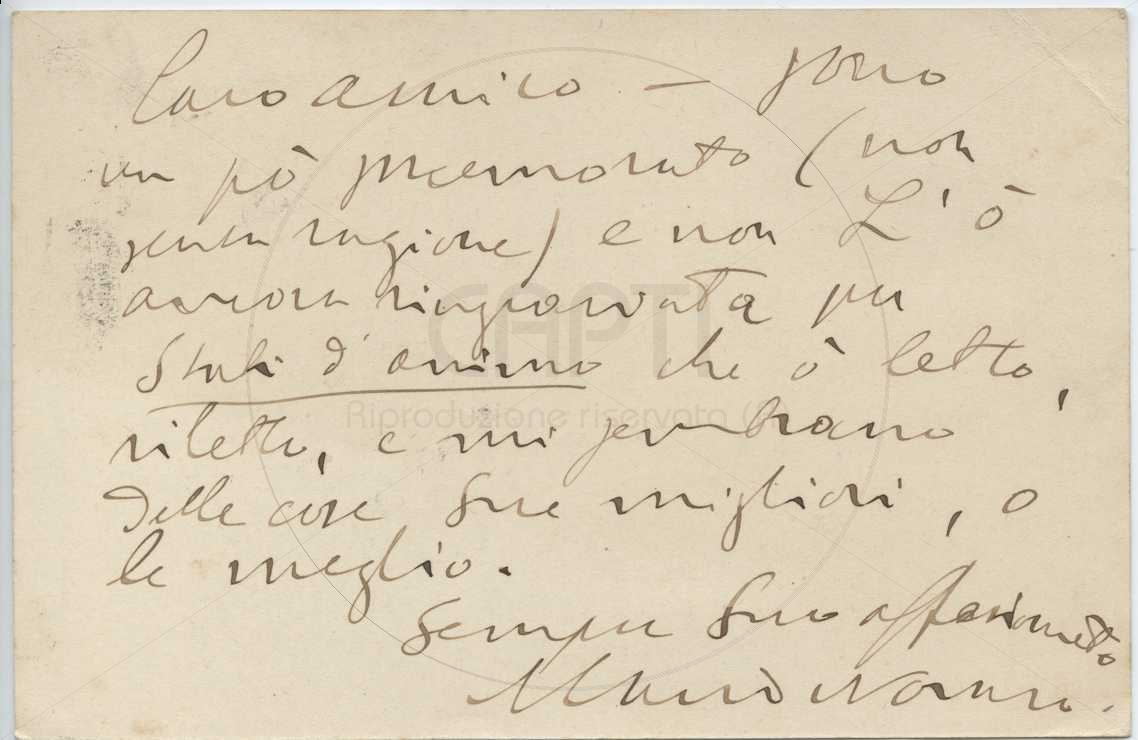 Caro amico — sono
un pò smemorato (non
senza ragione) e non L'ò
ancora ringraziata per
Stati d'animo che ò letto,
riletto, e mi sembrano
delle cose Sue migliori, o
le meglio.
Sempre Suo affezionato
CAPTI
Riproduzione riservata